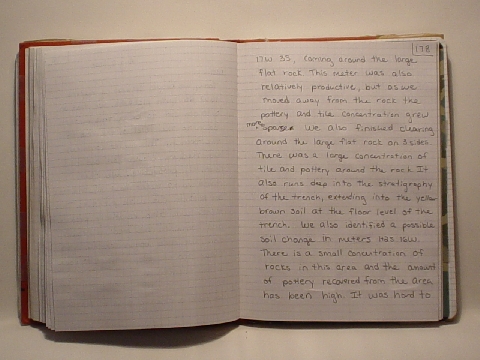 178
17W 35, coming around the large
flat rock. This meter was also
relatively productive, but as we
moved away from the rock the
pottery and tile concentration grew
more sparse. We also finished clearing
around the large flat rock on 3 sides.
There was a large concentration of
tile and pottery around the rock. It
also runs deep into the stratigraphy
of the trench, extending into the yellow
brown soil at the floor level of the
trench. We also identified a possible
soil change in meters 16W.
There is a small concentration of
rocks in this area and the amount
of pottery recovered from the area
has been high. It was hard to